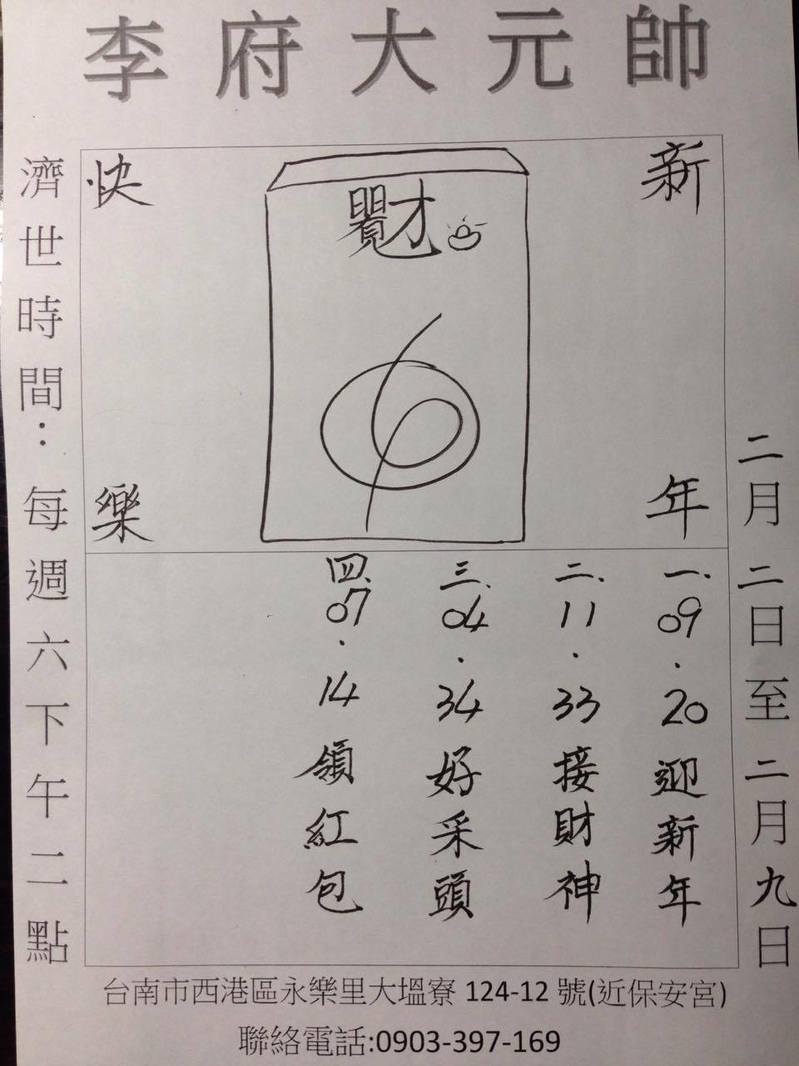 李府大元帥
新年
快樂
財
二月二日至二月九日
一.09.20迎新年
二.11.33接財神
三.04.34好采頭
四.07.14領紅包
濟世時間：每週六下午二點
台南市西港區永樂里大塭寮 124-12 號(近保安宮)
聯絡電話:0903-397-169